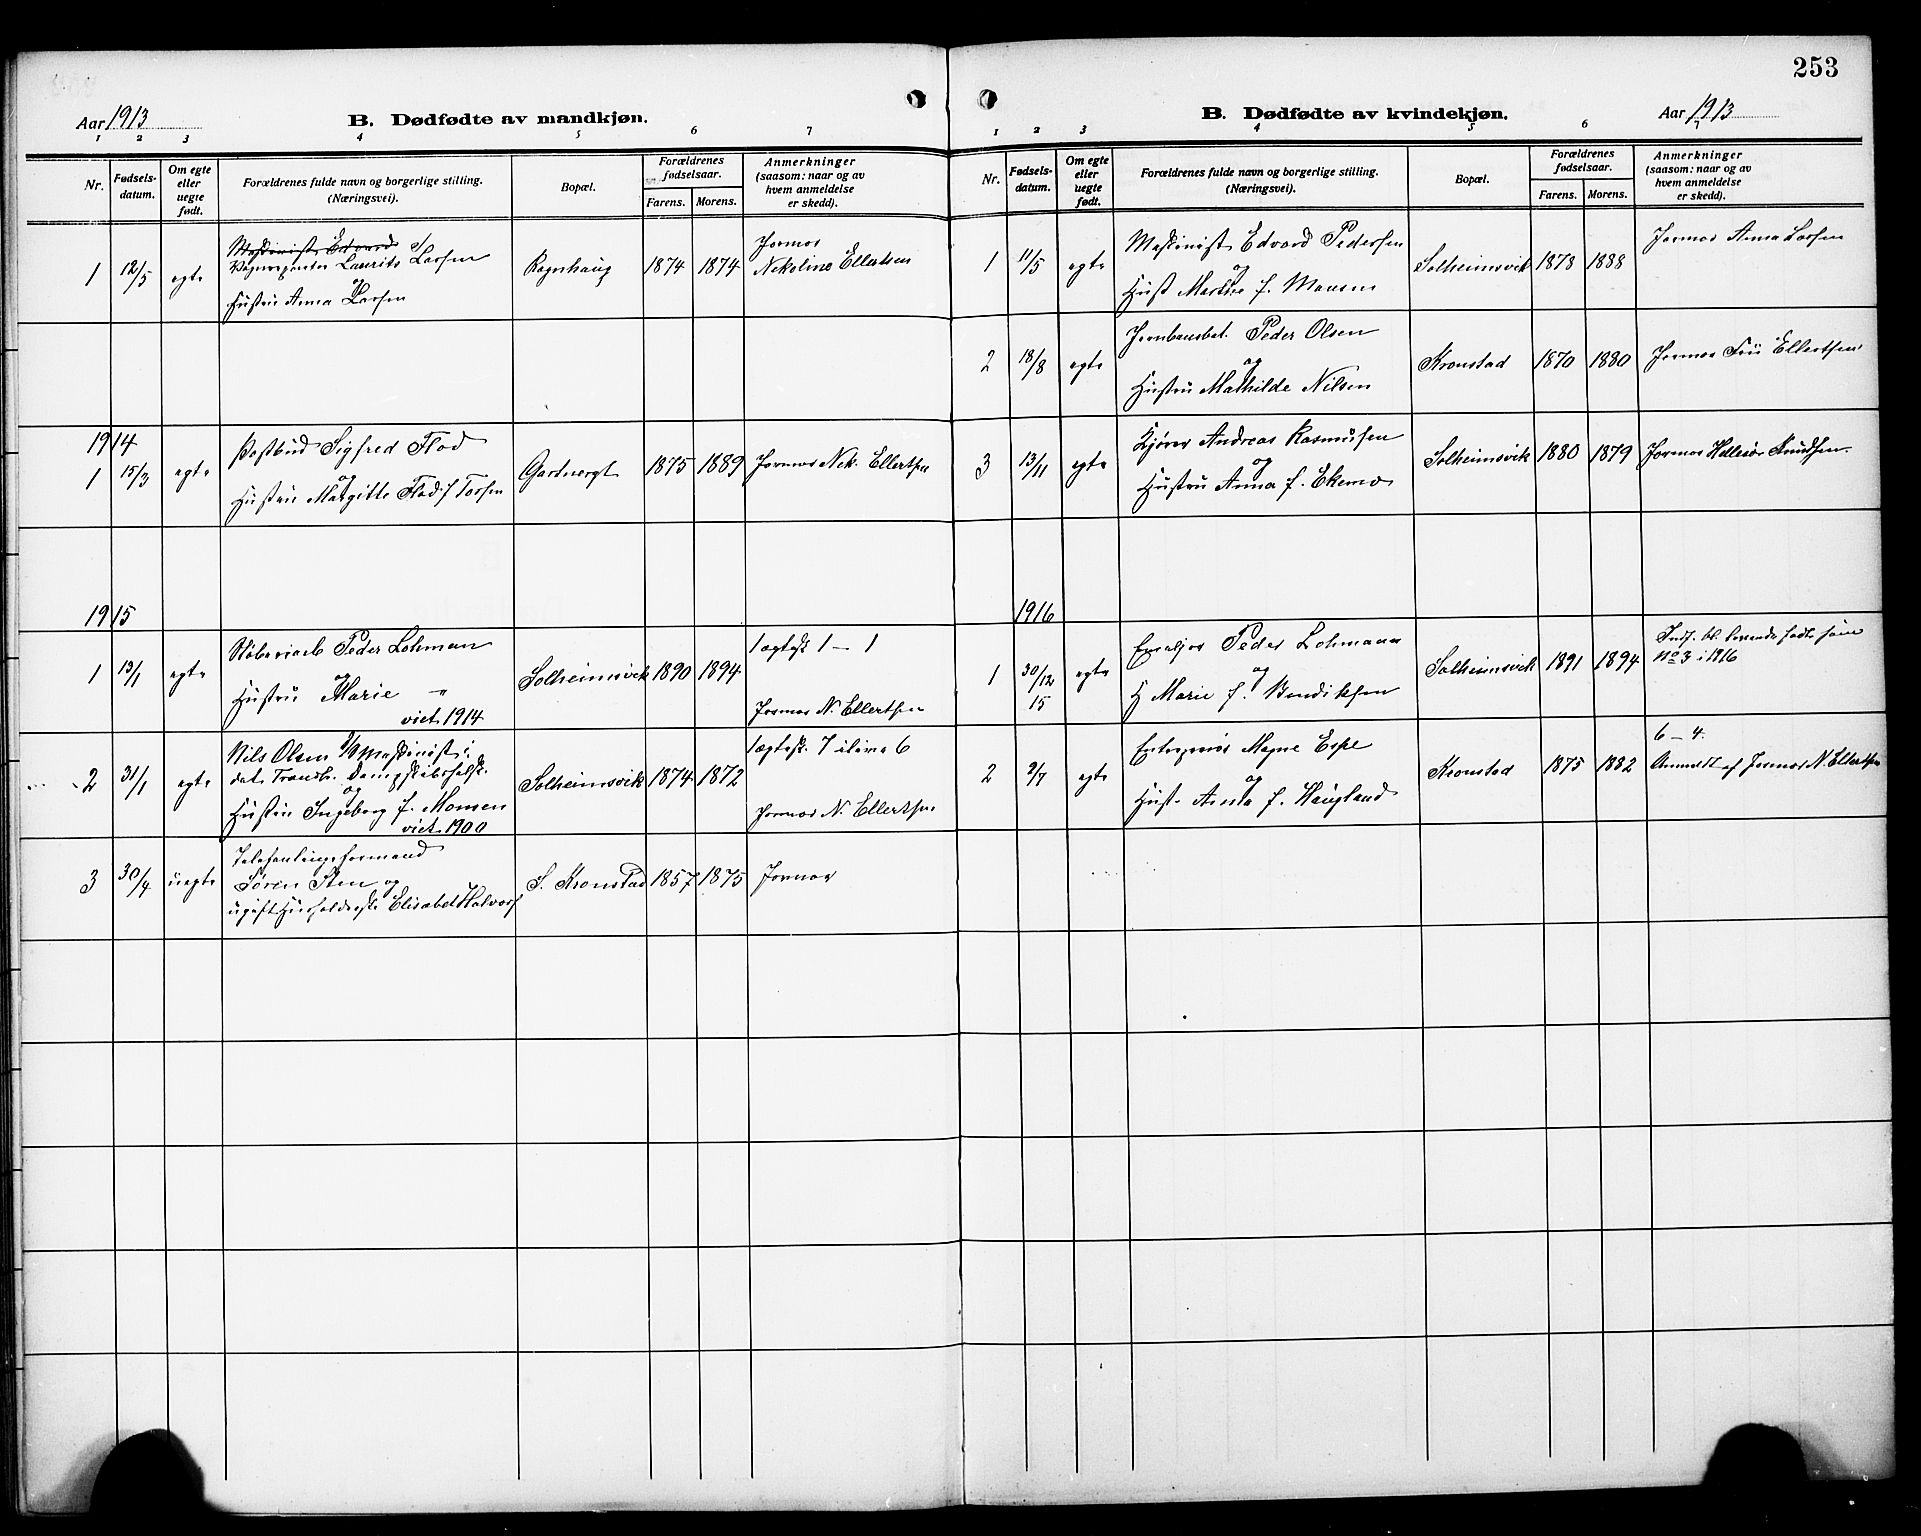 253
Aar 1913
B. Dødfødte av mandkjøn.
1 2 3 4 5 6 7
Nr.
Fødsels-
datum.
Om egte
eller
uegte
født.
Forældrenes fulde navn og borgerlige stilling.
(Næringsvei).
Bopæl.
Forældrenes
fødselsaar.
Farens. Morens.
Anmerkninger
(saasom: naar og av
hvem anmeldelse
er skedd).
Maskinist Edvard
Laurits Larsen
og
Hustru Anna Larsen
1 12/5 egte
Ragnhaug
1874 1874
Jormor
Nekoline Ellertsen
1914
1 15/3 egte
Postbud Sigfred Flod
og
Hustru Margitte Flod f. Torsen
Gartnergt
1875 1889
Jormor Nek. Ellertsen
1915
1 13/1 egte
Peder Lohman
og
Hustru Marie "
viet 1914
Solheimsvik
1890 1894
1ægtesk 1 – 1
Jormor N. Ellertsen
2 31/1 egte
Nils Olsen Maskinist i
det Transb. Dampskibsselsk.
og
Hustru Ingeborg f. Monsen
viet 1900
Solheimsvik
1874 1872
1ægtesk. 7 ilive 6
Jormor N. Ellertsen
3 30/4 uegte
Telefonlinjeformand
Søren Sten og
ugift Husholderske Elisabet Halvors
S. Kronstad
1857 1875
Jormor
B. Dødfødte av kvindekjøn.
Aar 1913
1 2 3 4 5 6 7
Nr.
Fødsels-
datum.
Om egte
eller
uegte
født.
Forældrenes fulde navn og borgerlige stilling.
(Næringsvei).
Bopæl.
Forældrenes
fødselsaar.
Farens. Morens.
Anmerkninger
(saasom: naar og av
hvem anmeldelse
er skedd).
1 11/5 egte
Maskinist Edvard Pedersen
og
Hust Marthe f. Monsen
Solheimsvik
1878 1888
Jormor Anna Larsen
2 18/8 egte
Jernbanebet. Peder Olsen
og
Hustru Mathilde Nilsen
Kronstad
1870 1880
Jormor Fru Ellertsen
3 13/11 egte
Kjører Andreas Rasmusen
og
Hustru Anna f. Ekemo
Solheimsvik
1880 1879
Jormor Knudsen
1916
1 30/12 15 egte
Emaljør Peder Lohmann
og
H Marie f. Bendiksen
Solheimsvik
1891 1894
Indf. bl. levende fødte som
No 3 i 1916
2 2/7 egte
Entreprenør Magne Espe
og
Hust. Anna f. Haugland
Kronstad
1875 1882
6 – 4.
Anmeldt af Jormor N. Ellertsen